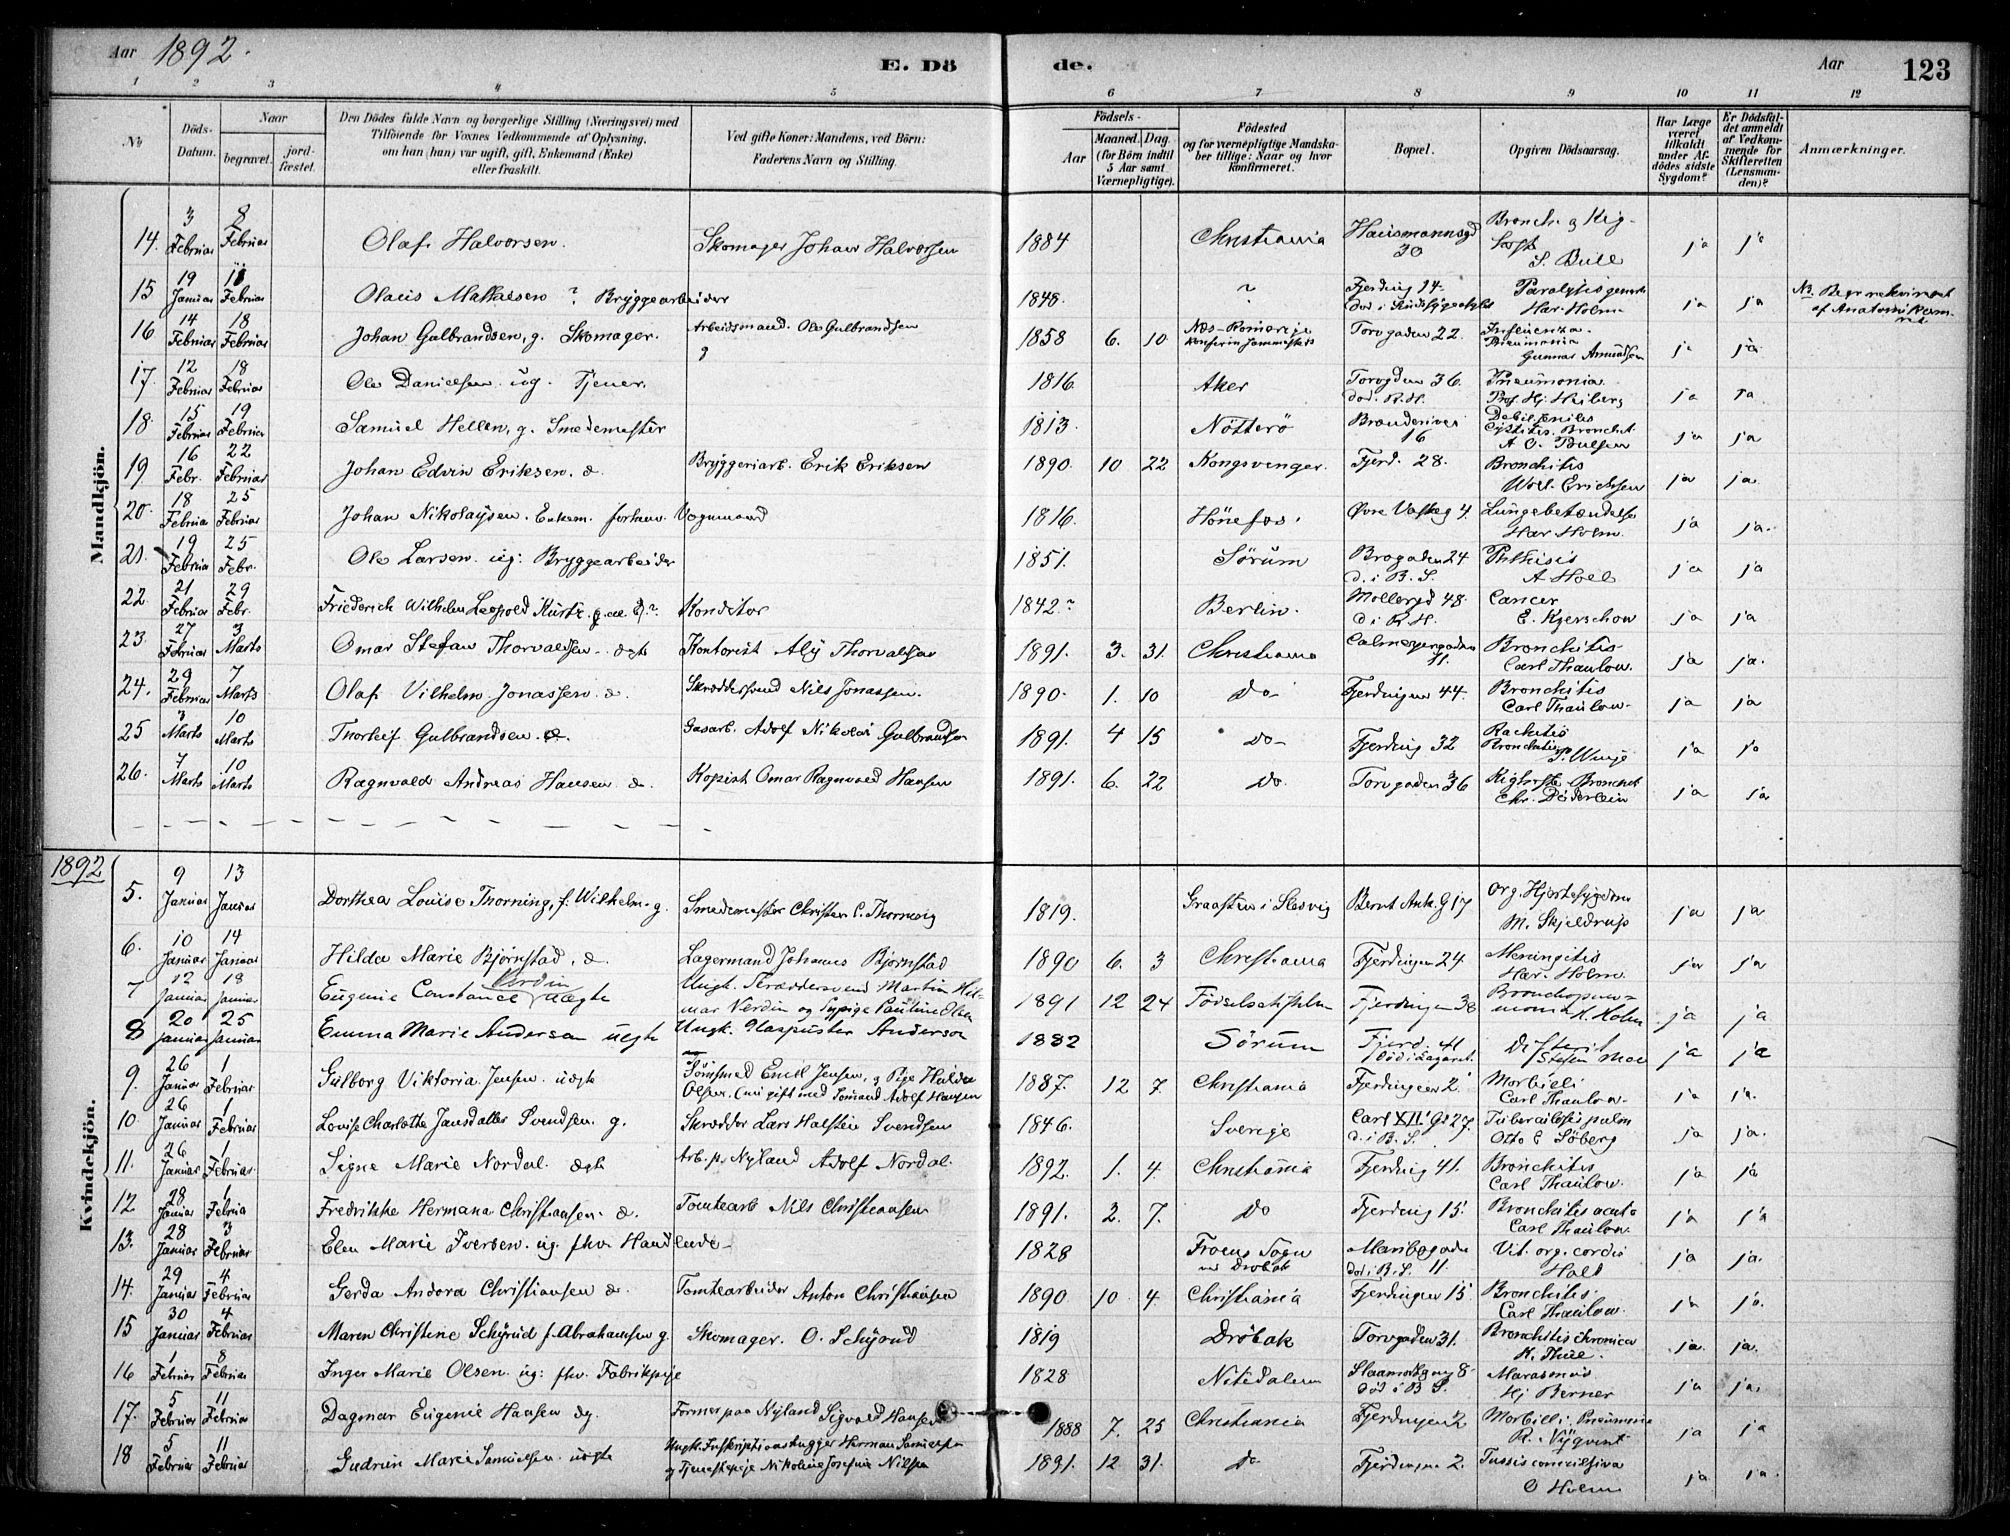 Aar 1892. E. Dö de. Aar 123
1 2 3 4 5 6 7 8 9 10 11 12
No
Döds-Datum.
Naar
begravet.
jordfæstet.
Den Dödes fulde Navn og borgerlige Stilling (Næringsvei) med
Tilföiende for Voxnes Vedkommende af Oplysning,
om han (hun) var ugift, gift, Enkemand (Enke)
eller fraskilt.
Ved gifte Koner: Mandens, ved Börn:
Faderens Navn og Stilling.
Födsels-
Aar
Maaned. Dag.
(for Börn indtil
5 Aar samt
Værnepligtige).
Födested
og for værnepligtige Mandskaber tillige: Naar og hvor
konfirmeret.
Bopæl.
Opgiven Dödsaarsag.
Har Læge
været
tilkaldt
under Afdödes sidste
Sygdom?
Er Dödsfaldet anmeldt
af Vedkommende for
Skifteretten
(Lensmanden)?
Anmærkninger.
Mandkjön.
14. 3 Februar 8 Februar Olaf Halvorsen. Skomager Johan Halvorsen 1884 Christiania Hausmannsgd 30 Bronch. og S. Bull ja ja
15 19 Januar Februar Olaus Mathisen ? Bryggearbeider 1848. ? Fjerding 14. Paralysis Har. Holm ja ja NB. Begr
16 14 Februar 18 Februar Johan Gulbrandsen, g. Skomager. Arbeidsmand. Ole Gulbrandsen 1858 6. 10 Næs-Romerige Torvgaden 22. Influenza. Pneumonia Gunnar Amundsen ja ja
17. 12 Februar 18 Februar Ole Danielsen ug. Tjener. 1816. Aker Torvgden 36. död. R.H. Pneumonia. Prof. Hj. Heiberg ja ja
18. 15 Februar 19 Februar Samuel Hellen, g. Smedemester 1813. Nötterö 16 Cystitis. Bronchit A. O. Poulsen ja ja
19 16 Febr. 22 Februar Johan Edvin Eriksen. d. Bryggeriarb. Erik Eriksen 1890. 10 22 Kongsvinger. Fjerd. 28. Bronchitis Woll. Erichsen ja ja.
20. 18 Februa 25 Februar Johan Nikolaysen. Enkem. forhenv. Vognmand 1816. Hönefos. Øvre Vaskeg 4. Lungebetændelse Har Holm ja ja.
21. 19 Februar 25 Febr. Ole Larsen. ug: Bryggearbeider 1851. Sörum Brogaden 24 d. i B. S. Phthisis A Holl ja ja
22. 21 Februar 29 Febr. Friederich Wilhelm Leopold Kurtz. Konditor 1842? Berlin. Mollergd 48. d i R.H. Cancer E. Kjerschow ja ja
23 27 Februar 3 Marts Omar Stefan Thorvaldsen. ægte Kontorist Thorvalsen 1891. 3. 31. Christiania 11. Bronchitis Carl Thaulow. ja ja.
24. 29 Februar 7 Marts Olaf Vilhelm Jonassen. d. Skræddersvend Nils Jonassen. 1890. 1. 10 do Fjerdingen 44. Bronchitis Carl Thaulow. ja ja
25 3 Marts 10 Marts Thorleif Gulbrandsen. d. Gasarb. Adolf Nikolai Gulbrandsen 1891. 4 15 do Fjerding 32 Rachitis Bronchitis P. Winge ja ja
26. 7 Marts 10 Marts Ragnvald Andreas Hansen d. Kopist Omar Ragnvald Hansen 1891. 6. 22 do. Torvgaden 36 Kighoste Bronchit Chr. Döderlein ja ja
1892
Kvindekjön.
5. 9 Januar 13 Januar Dorthea Louise Thorning, f. Wilhelm. g. Smedemester Christen C. Thorning 1819. Graasten i Slesvig Bernt Ank. G 17 Org. Hjertesygdom M. Skjeldrup ja ja
6. 10 Januar 14 Januar Hilda Marie Bjørnstad. d. Lagermand Johannes Bjørnstad 1890 6. 3 Christiania Fjerdingen 24. Meningitis Har. Holm. ja ja
7 12 Januar 18 Januar Eugenie Constance Verdin uægte Ungk. Skræddersvend Martin Hilmar Verdin og Sypige Pauline Olsen 1891 12 24 Födselsstiftelsen Fjerdingen 38 Bronchopneumonia H. Holm ja ja
8 20 Januar 25 Januar Emma Marie Andersen uægte Ungk. Glaspuster Anderson 1882 Sörum Fjerd. 41 Död i Lazaret. Difterit Steffen Moe ja ja
9. 26 Januar 1 Februar Gulborg Viktoria Jensen. uægte Tömsmed Emil Jensen, og Pige Hulda Olsen. (nu gift med Sömand Adolf Hansen 1887. 12 7. Christiania Fjerdingen 2. Morbilli Carl Thaulow. ja ja.
10. 26 Januar 1 Februar Lovise Charlotte Jansdatter Svendsen. g. Skrædder Lars Halsten Svendsen 1846. Sverige Carl XII. Gd 27. d. i B. S. Tuberculosis pulm Otto E Söberg ja ja.
11. 26 Januar 1 Februar Signe Marie Nordal. ægte Arb. p. Nyland Adolf Nordal. 1892. 1. 4. Christiania Fjerding 41. Bronchitis Carl Thaulow. ja ja
12 28 Januar 1 Februa Fredrikke Hermana Christiansen. d. Tomtearb Nils Christiansen 1891. 2. 7. do Fjerding 15. Bronchitis acuta Carl Thaulow. ja ja
13. 28 Januar 3 Februar Elen Marie Iversen. ug. fhv. Handlende- 1828 Froens Sogn ved Dröbak Maribogade död i B. S. 11. Vit. org. cordis Holt ja ja.
14. 29 Januar 4 Februar Gerda Andora Christiansen d. Tomtearbeider Anton Christiansen 1890 10 4. Christiania Fjerdingen 15. Bronchitis Carl Thaulow. ja ja.
15 30 Januar 4 Februar Maren Christine Schyrud f. Abrahamsen g. Skomager. O. Schyrud 1819 Dröbak Torvgaden 31. Bronchitis chronica K. Thue. ja. ja.
16 1 Februar 8 Februar Inger Marie Olsen. ug: fhv. Fabrikpige 1828 Nitedalen 8. död i B S. Marasmus Hj Berner ja ja.
17. 5 Februar 11 Februar Dagmar Eugenie Hansen æg. Former paa Nyland Sigvald Hansen 1888 7. 25 Christiania Fjerdingen 2 Morbilli, Pneumonia R. Vigvent ja ja
18 5 Februar 11 Februar Gudrun Marie Samuelsen. uægte Ungk. Inskriptionshugger Herman Samuelsen og Tjenestepige Nikoline Josefine Nilsen 1891. 12 31. do Fjerdingen 2. Tussis convulsiva O Holm ja ja.